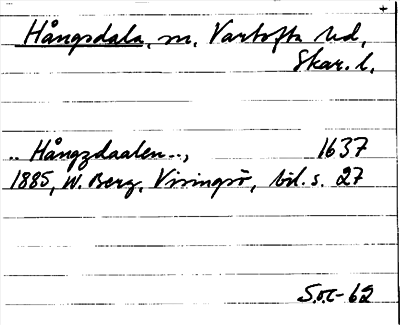 Hångsdala, sn. Vartofta hd,
Skar. l.
.. Hångzdaalen..., 1637
1885, W. Berg, Visingsö, bil. s. 27
S.o.t-62